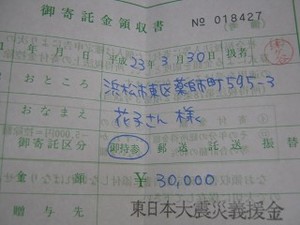 御寄託金領収書 № 018427
年月日 平成23年3月30日 扱者
おところ 浜松市東区薬師町595-3
おなまえ 花子さん 様
御寄託区分 御持参 郵送 託送 振替
金額 ¥30,000
贈与先 東日本大震災義援金